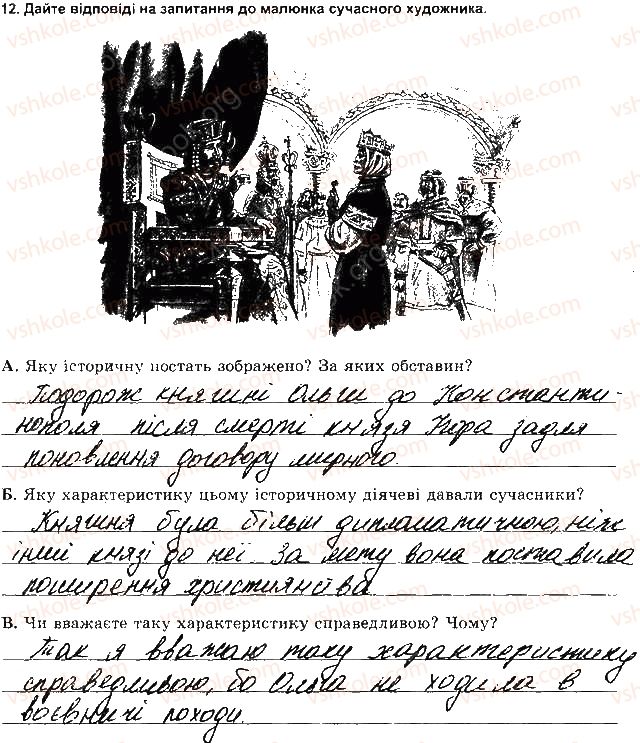 12. Дайте відповіді на запитання до малюнка сучасного художника.
А. Яку історичну постать зображено? За яких обставин?
Подорож княгині Ольги до Константи-
нополя після смерті князя Ігора задля
поновлення договору мирного.
Б. Яку характеристику цьому історичному діячеві давали сучасники?
Княгиня була більш дипломатичною, ніж
інші князі до неї. За мету вона поставила
поширення християнства
В. Чи вважаєте таку характеристику справедливою? Чому?
Так я вважаю таку характеристику
справедливою, бо Ольга не ходила в
воєвничі походи.